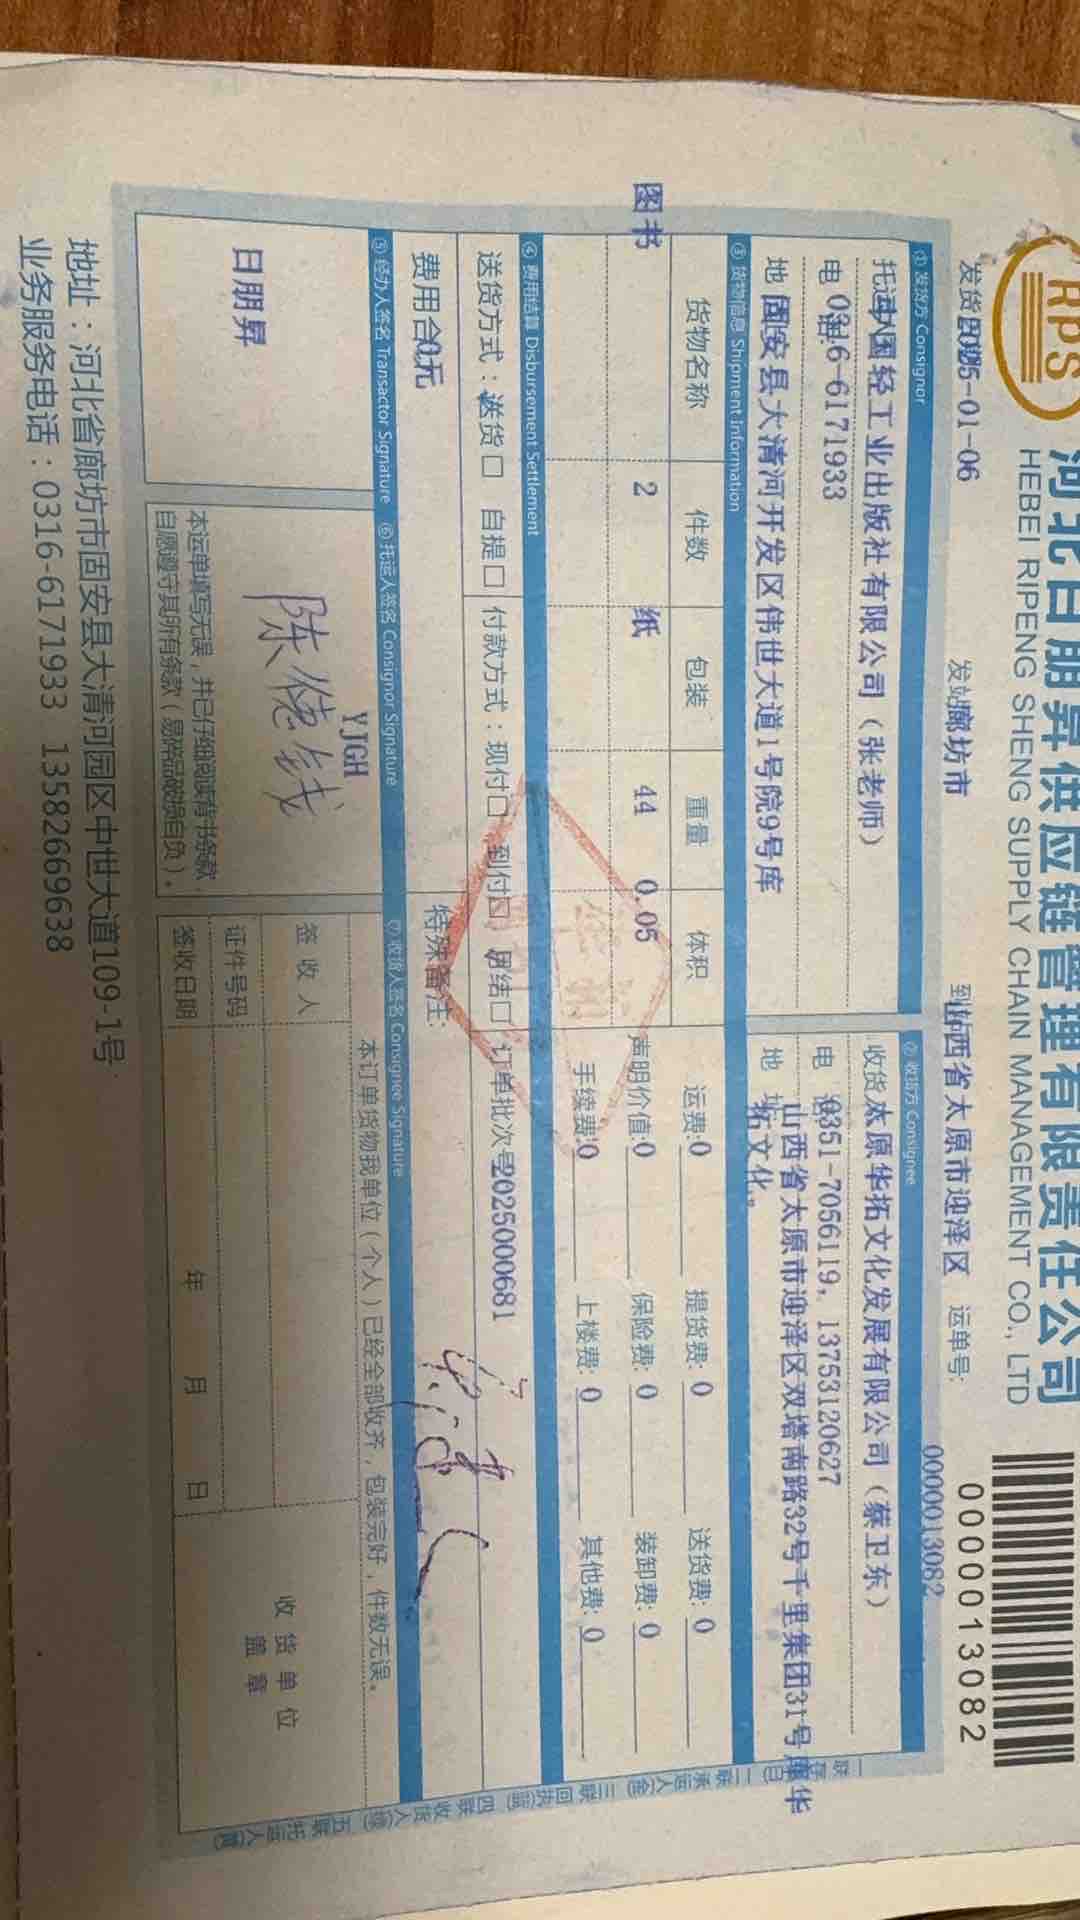 RPS
河北日朋昇供应链管理有限责任公司
HEBEI RIPENG SHENG SUPPLY CHAIN MANAGEMENT CO., LTD
0000013082
0000013082
发货日期 2025-01-06
发站 廊坊市
到站 山西省太原市迎泽区
运单号:
① 发货方 Consignor
② 收货方 Consignee
托运人 中国轻工业出版社有限公司（张老师）
收货人 太原华拓文化发展有限公司（蔡卫东）
电 话 0316-6171933
电 话 0351-7056119, 13753120627
地 址 固安县大清河开发区伟世大道1号院9号库
地 址 山西省太原市迎泽区双塔南路32号千里集团31号库华
拓文化。
③ 货物信息 Shipment Information
货物名称 件数 包装 重量 体积
图书 2 纸 44 0.05
运费:0 提货费:0 送货费:0
声明价值:0 保险费:0 装卸费:0
手续费:0 上楼费:0 其他费:0
④ 费用结算 Disbursement Settlement
送货方式：送货□ 自提□ 付款方式：现付□ 到付□ 月结□ 订单批次号 2025000681
费用合计 0元
特殊备注:
⑤ 经办人签名 Transactor Signature
⑥ 托运人签名 Consignor Signature
⑦ 收货人签名 Consignee Signature
日朋昇
YJGH
本运单填写无误，并已仔细阅读背书条款，
自愿遵守其所有条款（易碎品破损自负）。
本订单货物我单位（个人）已经全部收齐，包装完好，件数无误。
签 收 人
证件号码
签收日期 年 月 日
收 货 单 位
盖 章
地址：河北省廊坊市固安县大清河园区中世大道109-1号
业务服务电话：0316-6171933 13582669638